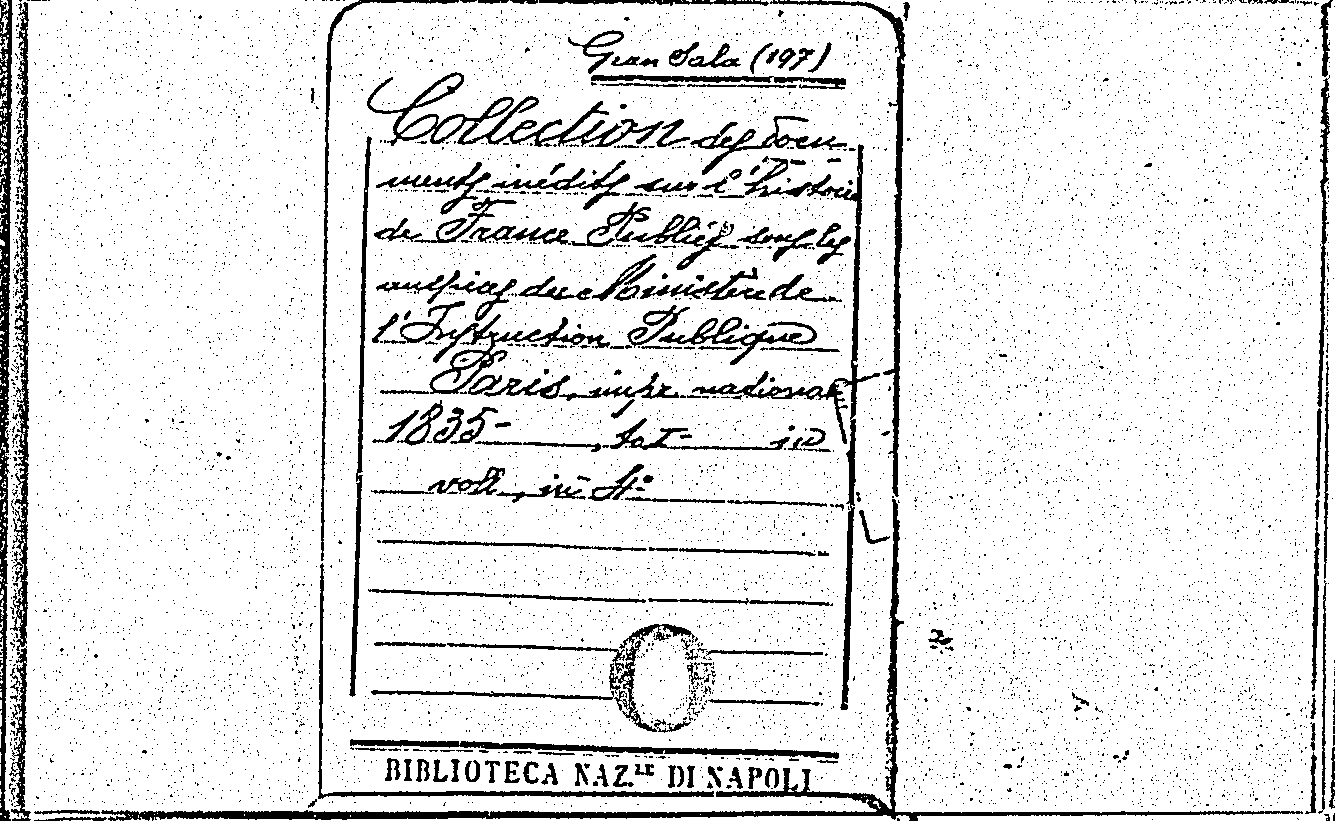 Gran Sala (197)
Collection des docu-
ments inédits sur l'histoire
de France Publiés sous les
auspices du Ministère de
l'Instruction Publique
Paris, impr. nationale
1835- , to. I- in
voll., in 4º
BIBLIOTECA NAZ.LE DI NAPOLI